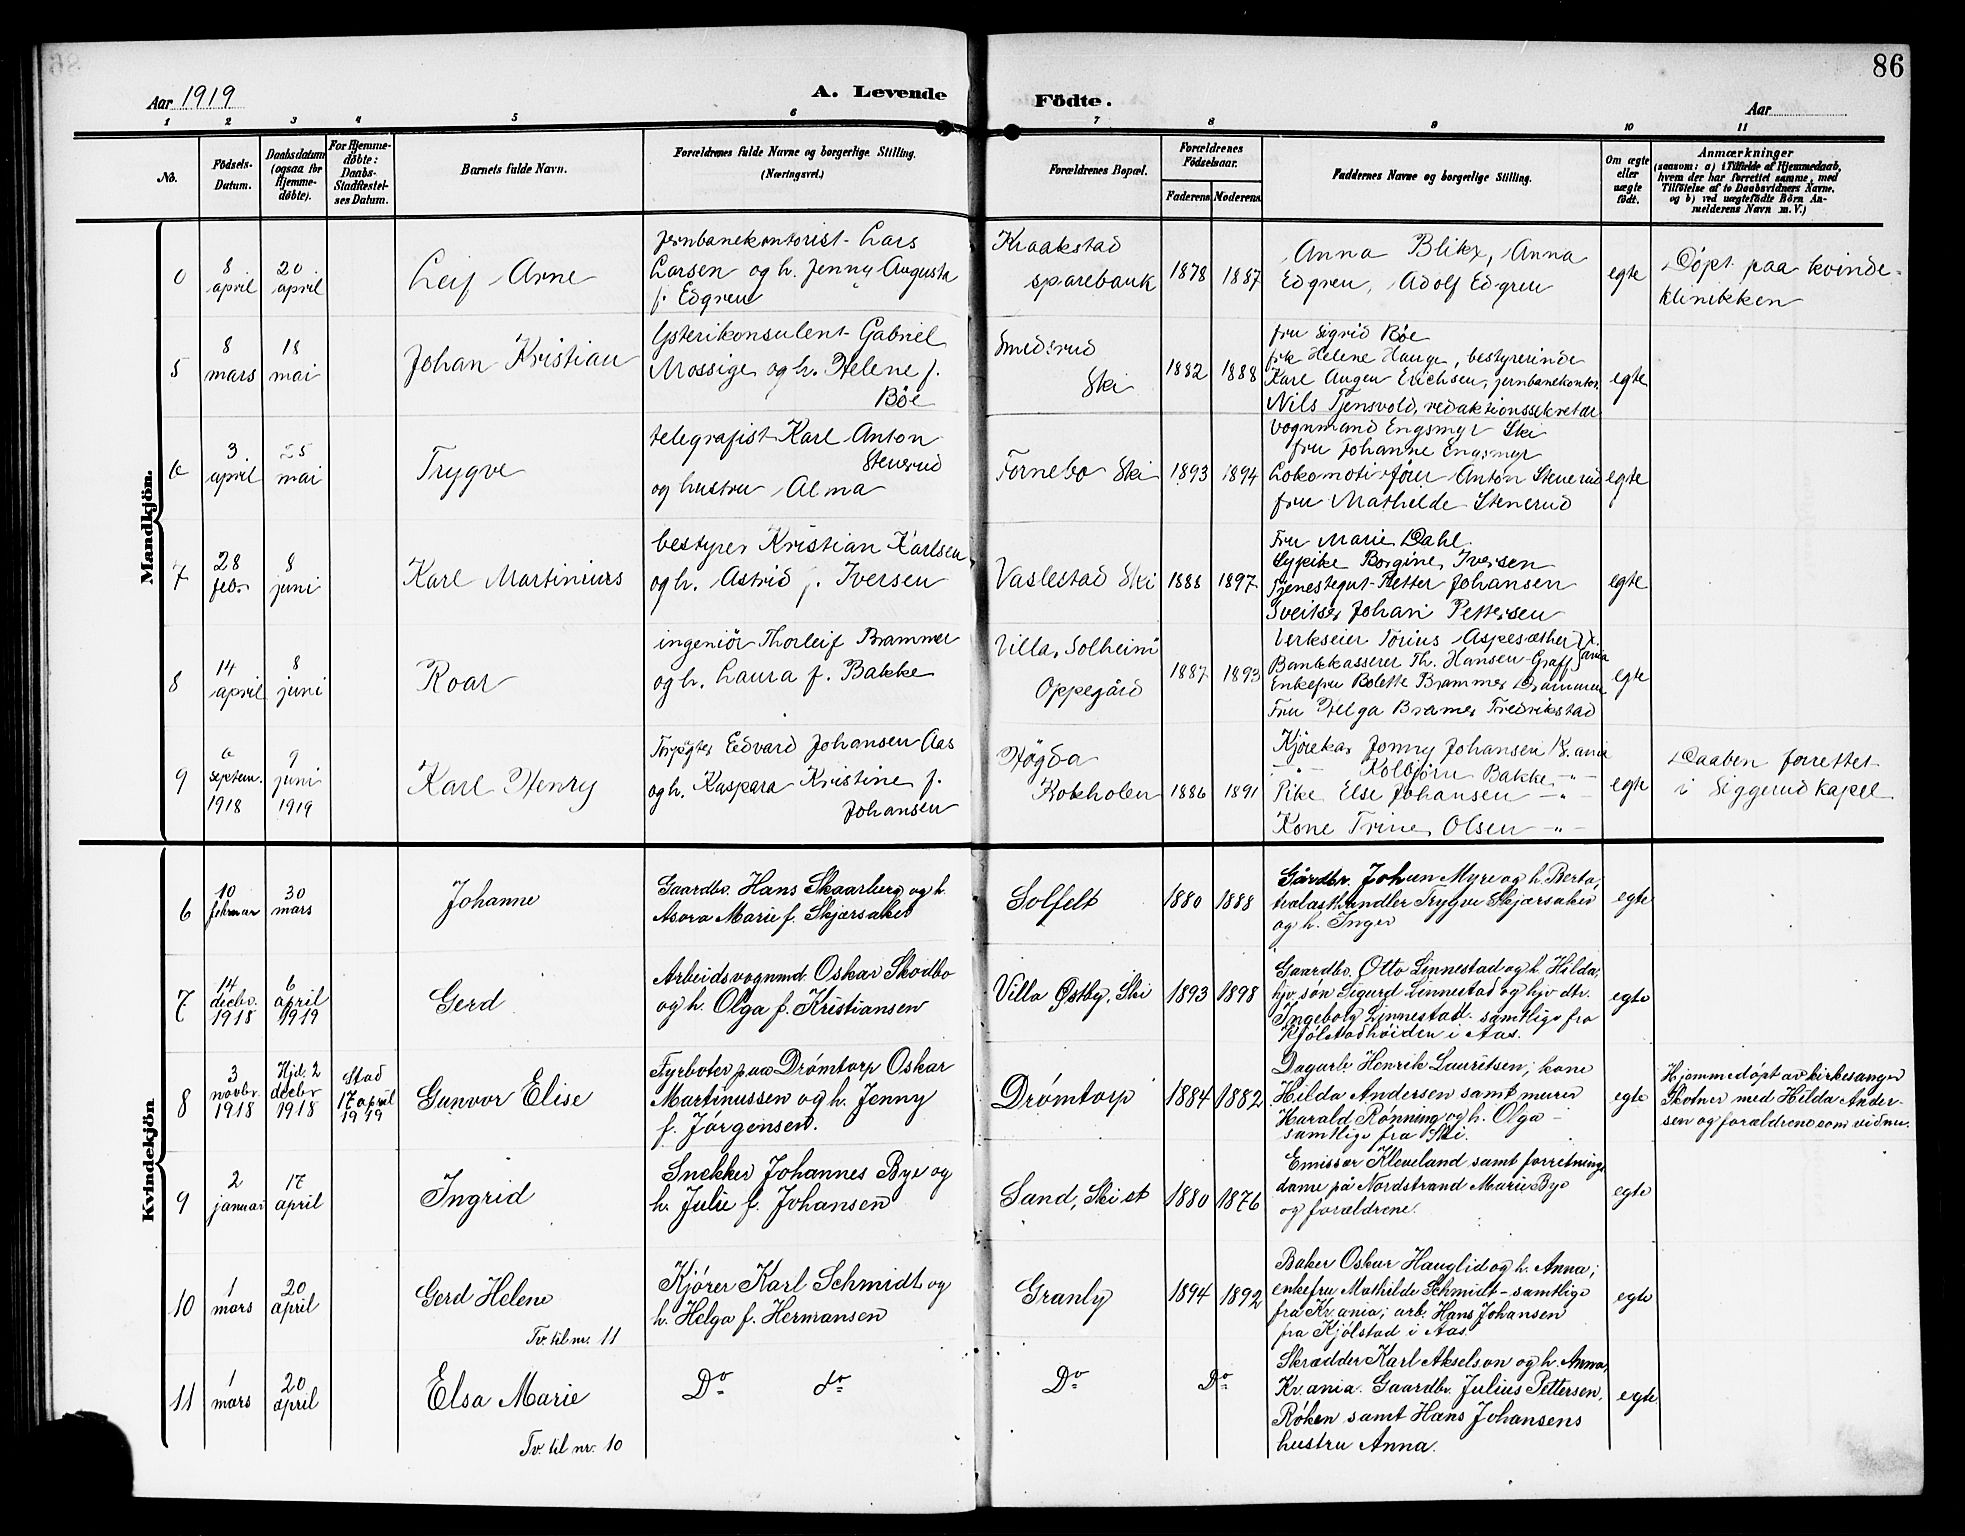 86
Aar 1919
A. Levende Födte.
Aar
1 2 3 4 5 6 7 8 9 10 11
No.
Födsels-Datum.
Daabsdatum (ogsaa for Hjemme-döbte).
For Hjemme-döbte: Daabs-Stadfæstel-ses Datum.
Barnets fulde Navn.
Forældrenes fulde Navne og borgerlige Stilling.
(Næringsvei.)
Forældrenes Bopæl.
Forældrenes Födselsaar.
Faderens Moderens
Faddernes Navne og borgerlige Stilling.
Om ægte eller uægte födt.
Anmærkninger
(saasom: a) i Tilfælde af Hjemmedaab,
hvem der har forrettet samme, med
Tilföielse af to Daabsvidners Navne.
og b) ved uægtefödte Börn An-
melderens Navn m. V.)
Mandkjön.
0
8 april
20 april
Leif Arne
Jernbanekontorist Lars
Larsen og h. Jenny Augusta
f. Edgren
Kraakstad
sparebank
1878 1887
Anna Blikx, Anna
Edgren, Adolf Edgren
egte
Döpt paa kvinde-
klinikken
5
8 mars
18 mai
Johan Kristian
Ysterikonsulent Gabriel
Mossige og h. Helene f.
Böe
Smedsrud
Ski
1882 1888
fru Sigrid Böe
frk Helene Hauge, bestyrerinde
Karl Augen Erichsen, jernbanekontor.
Nils Tjensvold, redaktionssekretær
egte
6
3 april
25 mai
Trygve
telegrafist Karl Anton
Stenerud
og hustru Alma
Fornebo Ski
1893 1894
Vognmand Engsmyr Ski
fru Johanne Engsmyr
Lokomotivförer Anton Stenerud
fru Mathilde Stenerud
egte
7
28 feb.
8 juni
Karl Martinius
bestyrer Kristian Karlsen
og h. Astrid f. Iversen
Vaslestad Ski
1888 1897
Fru Marie Dahl
Sypike Borgine Iversen
Tjenestegut Petter Johansen
Sveitser Johan Pettersen
egte
8
14 april
8 juni
Roar
ingeniör Thorleif Brammer
og h. Laura f. Bakke
Villa Solheim
Oppegård
1887 1893
Verkseier Torius Aspesæther } Kr.
Bankkasserer Th. Hansen-Graff } ania
Enkefru Bolette Brammer Drammen
Fru Helga Bramer Fredrikstad
egte
9
6 septem. 1918
9 juni 1919
Karl Henry
Forpagter Edvard Johansen Aas
og h. Kaspara Kristine f.
Johansen
Högda
Kokholen
1886 1891
Kjörekar Jonny Johansen Kr.ania
-"- Kolbjörn Bakke -"-
Pike Else Johansen -"-
Kone Trine Olsen -"-
egte
Daaben forrettet
i Siggerud kapel
Kvindekjön
6
10 februar
30 mars
Johanne
Gaardbr. Hans Skaarberg og h.
Asora Marie f. Skjærsaker
Solfelt
1880 1888
Gårdbr. Johan Myre og h. Berta,
trælasthandler Trygve Skjærsaker
og h. Inger
egte
7
14 decbr. 1918
6 april 1919
Gerd
Arbeidsvognmd. Oskar Skodbo
og h. Olga f. Kristiansen
Villa Østby, Ski
1893 1898
Gaardbr. Otto Linnestad og h. Hilda,
hjv. sön Sigurd Linnestad og hjv. dtr.
Ingeborg Linnestad. samtlige fra
Kjølstadhøiden i Aas.
egte
8
3 novbr. 1918
Hjd. 2 decbr 1918
Stad 17 april 1919
Gunvor Elise
Fyrbøter paa Drømtorp Oskar
Martinussen og h. Jenny
f. Jørgensen.
Drømtorp
1884 1882
Dagarb. Henrik Lauritsen, kone
Hilda Andersen samt murer
Harald Rønning og h. Olga -
samtlige fra Ski.
egte
Hjemmedöpt av kirkesanger
Skotner med Hilda Ander-
sen og forældrene som vidner.
9
2 januar
17 april
Ingrid
Snekker Johannes Bye og
h. Julie f. Johansen
Sand, Ski st
1880 1876
Emissær Kleveland samt forretnings
dame på Nordstrand Marie Bye
og forældrene.
egte
10
1 mars
20 april
Gerd Helene
Tv. til nr. 11
Kjører Karl Schmidt og
h. Helga f. Hermansen
Granly
1894 1892
Baker Oskar Hauglid og h. Anna;
enkefru Mathilde Schmidt - samtlige
fra Kr.ania; arb. Hans Johansen
fra Kjølstad i Aas.
egte
11
1 mars
20 april
Elsa Marie
Tv. til nr. 10
Do do
Do
Do
Skrædder Karl Akselson og h. Anna,
Kr.ania. Gaardbr. Julius Pettersen,
Røken samt Hans Johansens
hustru Anna.
egte